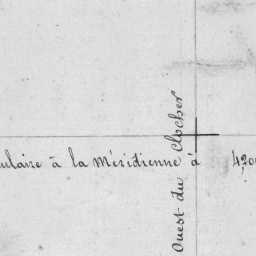 ulaire à la Méridienne à 4,20
Ouest du Clocher